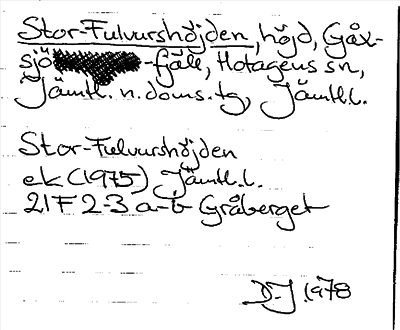 Stor-Fulvurshöjden, höjd, Gåx-
sjö -fjäll, Hotagens sn,
Jämtl. n. doms. tg, Jämtl.l.
Stor-Fulvurshöjden
ek (1975) Jämtl.l.
21F 2-3 a-b Gråberget
D-J 1978